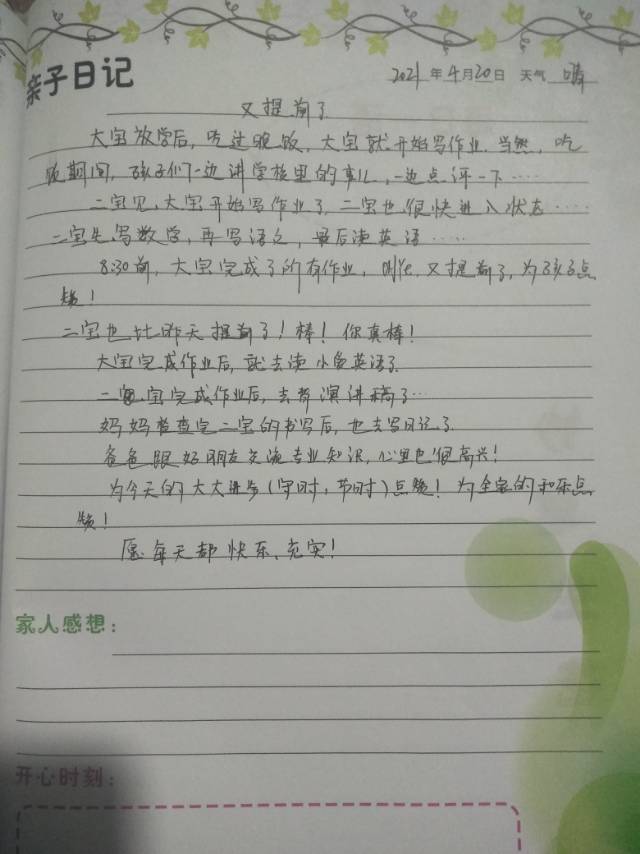 亲子日记
2021年4月20日 天气 晴
又提前了
大宝放学后，吃过晚饭，大宝就开始写作业。当然，吃
饭期间，孩子们一边讲学校里的事儿，一边点评一下……
二宝见大宝开始写作业了，二宝也很快进入状态……
二宝先写数学，再写语文，最后读英语……
8:30前，大宝完成了所有作业，叶Ye，又提前了，为孩子点
赞！
二宝也比昨天提前了！棒！你真棒！
大宝完成作业后，就去读小兔英语了
二宝完成作业后，去背演讲稿了…
妈妈检查完二宝的书写后，也去写日记了
爸爸跟好朋友交流专业知识，心里也很高兴！
为今天的大大进步（守时，节时）点赞！为全家的和乐点
赞！
愿每天都快乐、充实！
家人感想：
开心时刻：